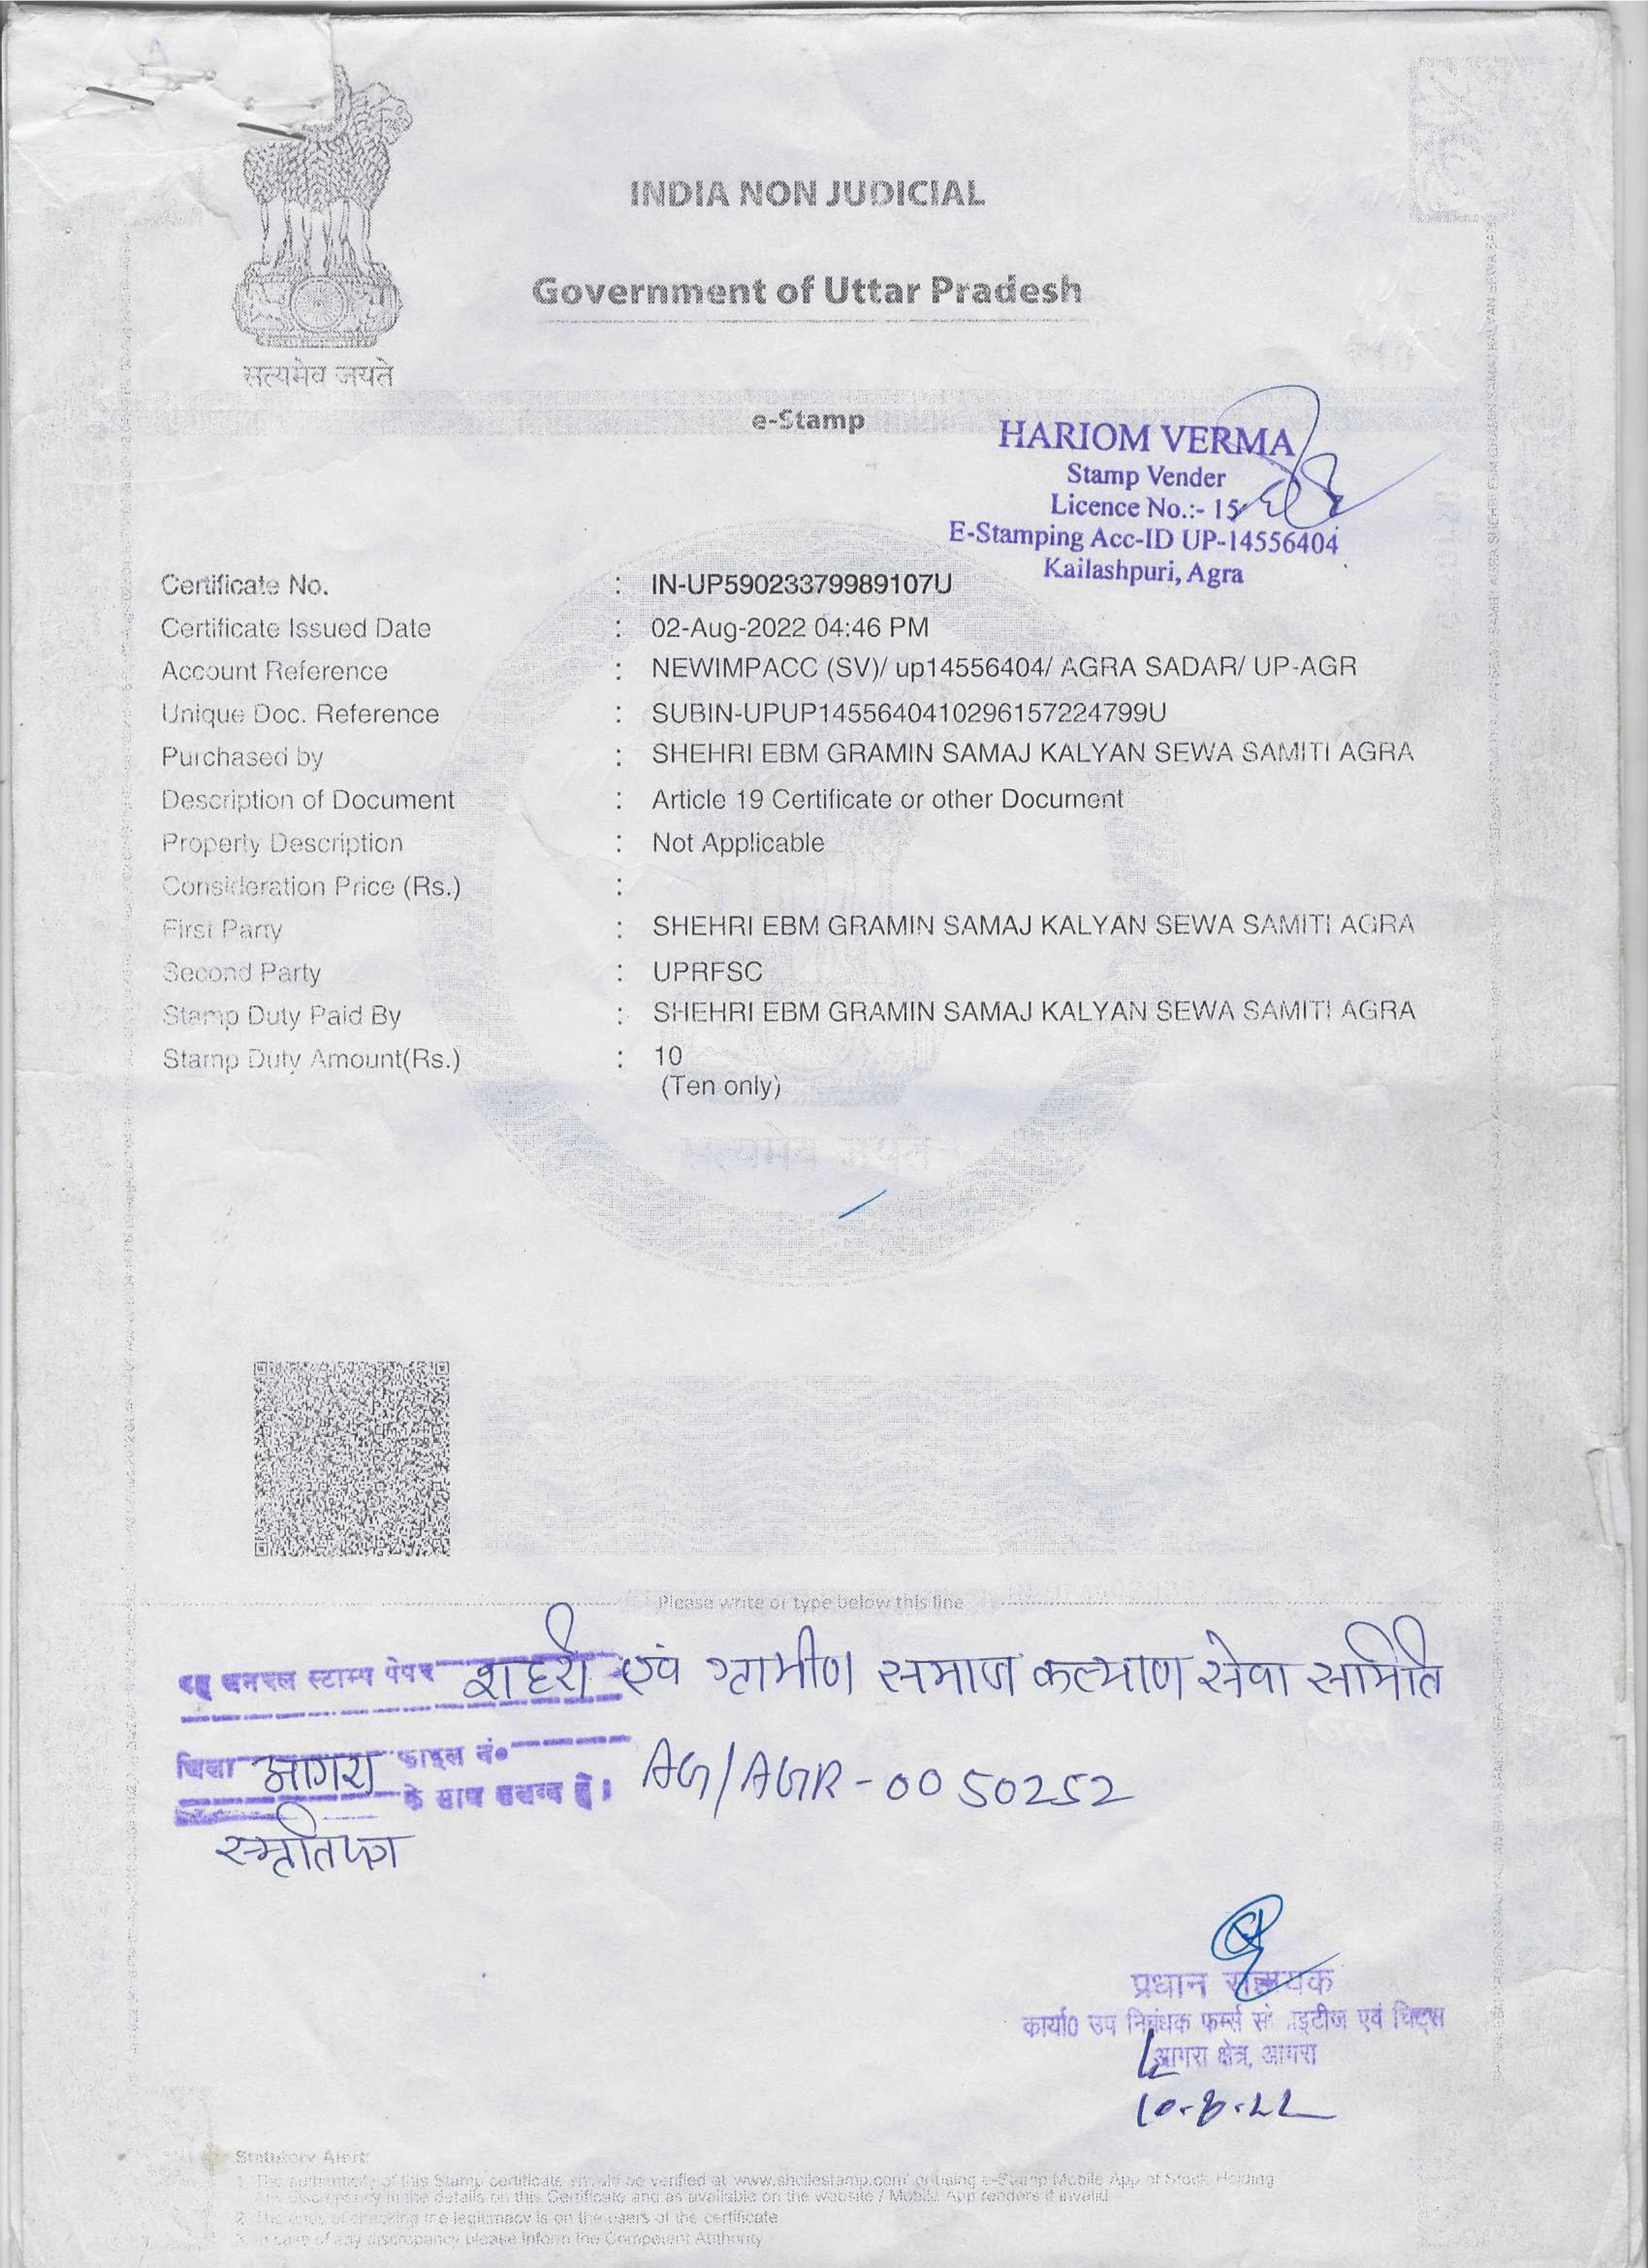 सत्यमेव जयते
INDIA NON JUDICIAL
Government of Uttar Pradesh
e-Stamp
HARIOM VERMA
Stamp Vender
Licence No.:- 15
E-Stamping Acc-ID UP-14556404
Kailashpuri, Agra
Certificate No. : IN-UP59023379989107U
Certificate Issued Date : 02-Aug-2022 04:46 PM
Account Reference : NEWIMPACC (SV)/ up14556404/ AGRA SADAR/ UP-AGR
Unique Doc. Reference : SUBIN-UPUP1455640410296157224799U
Purchased by : SHEHRI EBM GRAMIN SAMAJ KALYAN SEWA SAMITI AGRA
Description of Document : Article 19 Certificate or other Document
Property Description : Not Applicable
Consideration Price (Rs.) :
First Party : SHEHRI EBM GRAMIN SAMAJ KALYAN SEWA SAMITI AGRA
Second Party : UPRFSC
Stamp Duty Paid By : SHEHRI EBM GRAMIN SAMAJ KALYAN SEWA SAMITI AGRA
Stamp Duty Amount(Rs.) : 10
(Ten only)
Please write or type below this line
यह जनरल स्टाम्प पेपर शहरी एवं ग्रामीण समाज कल्याण सेवा समिति
जिला आगरा फाइल नं० AG/AGR-0050252
के साथ संलग्न है।
प्रधान सहायक
कार्या० उप निबंधक फर्म्स सोसाइटीज एवं चिट्स
आगरा क्षेत्र, आगरा
10-8-22
Statutory Alert:
1. The authenticity of this Stamp certificate should be verified at 'www.shcilestamp.com' or using e-Stamp Mobile App of Stock Holding
Any discrepancy in the details on this Certificate and as available on the website / Mobile App renders it invalid
2. The onus of checking the legitimacy is on the users of the certificate
3. In case of any discrepancy please inform the Competent Authority